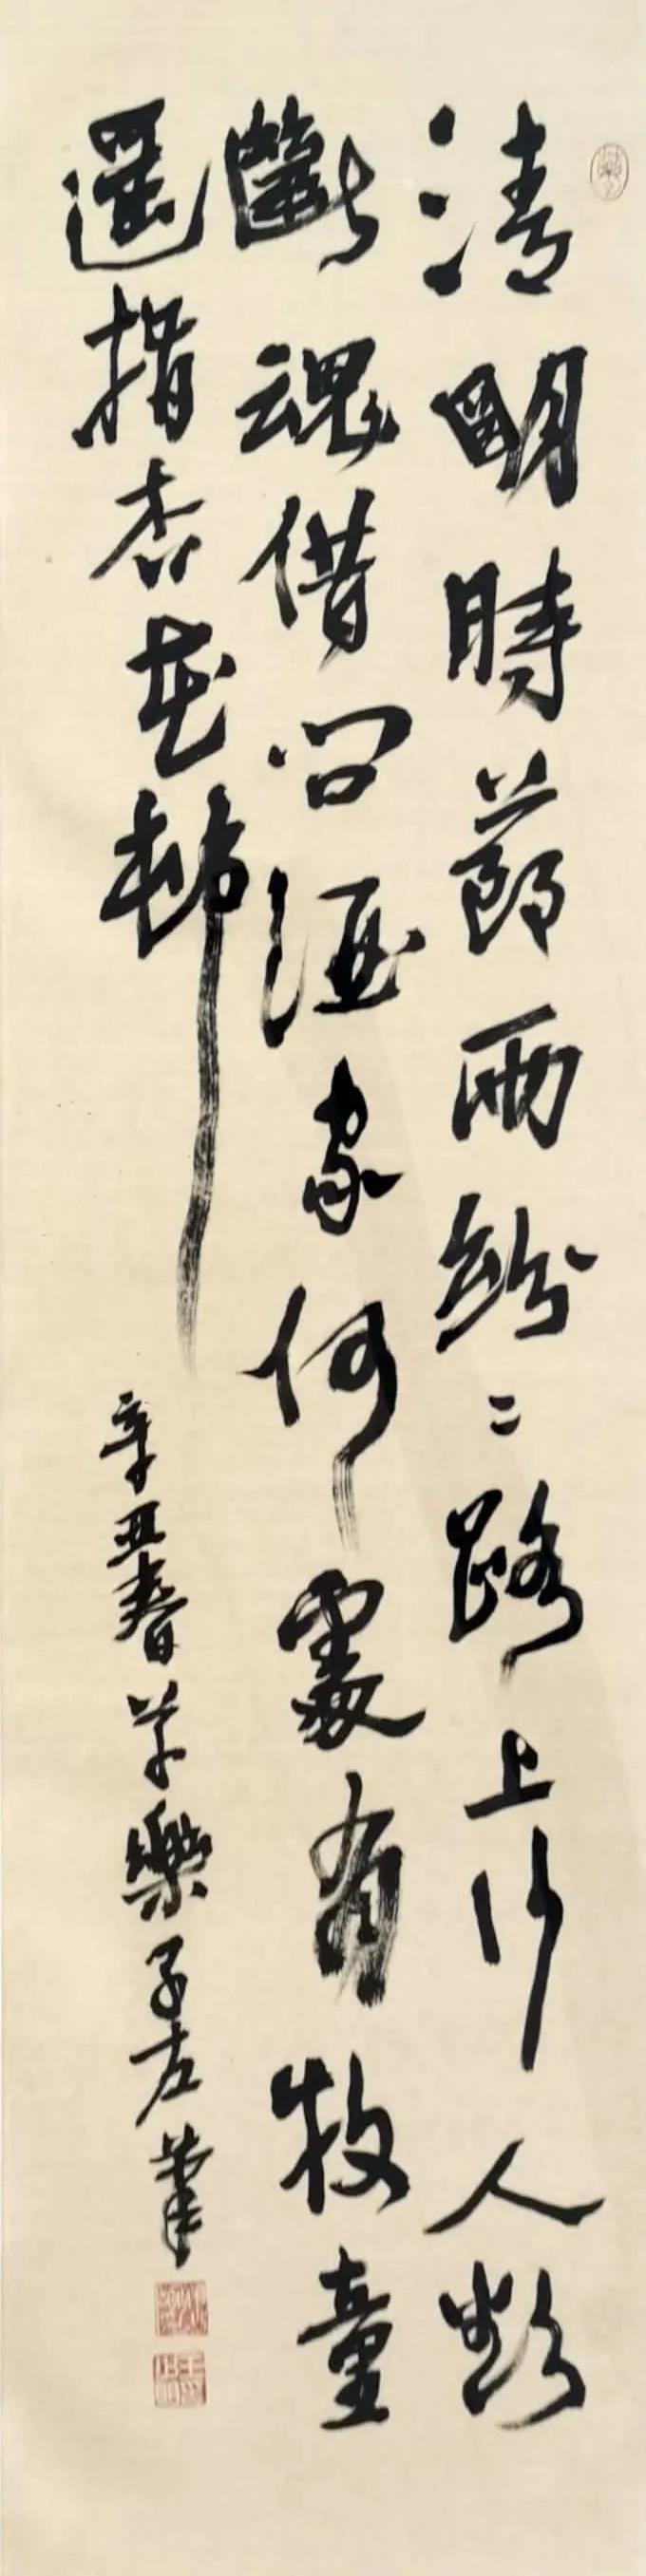 清明時節雨紛〻路上行人欲
斷魂借問酒家何處有牧童
遥指杏花邨
辛丑春芒樂子左筆